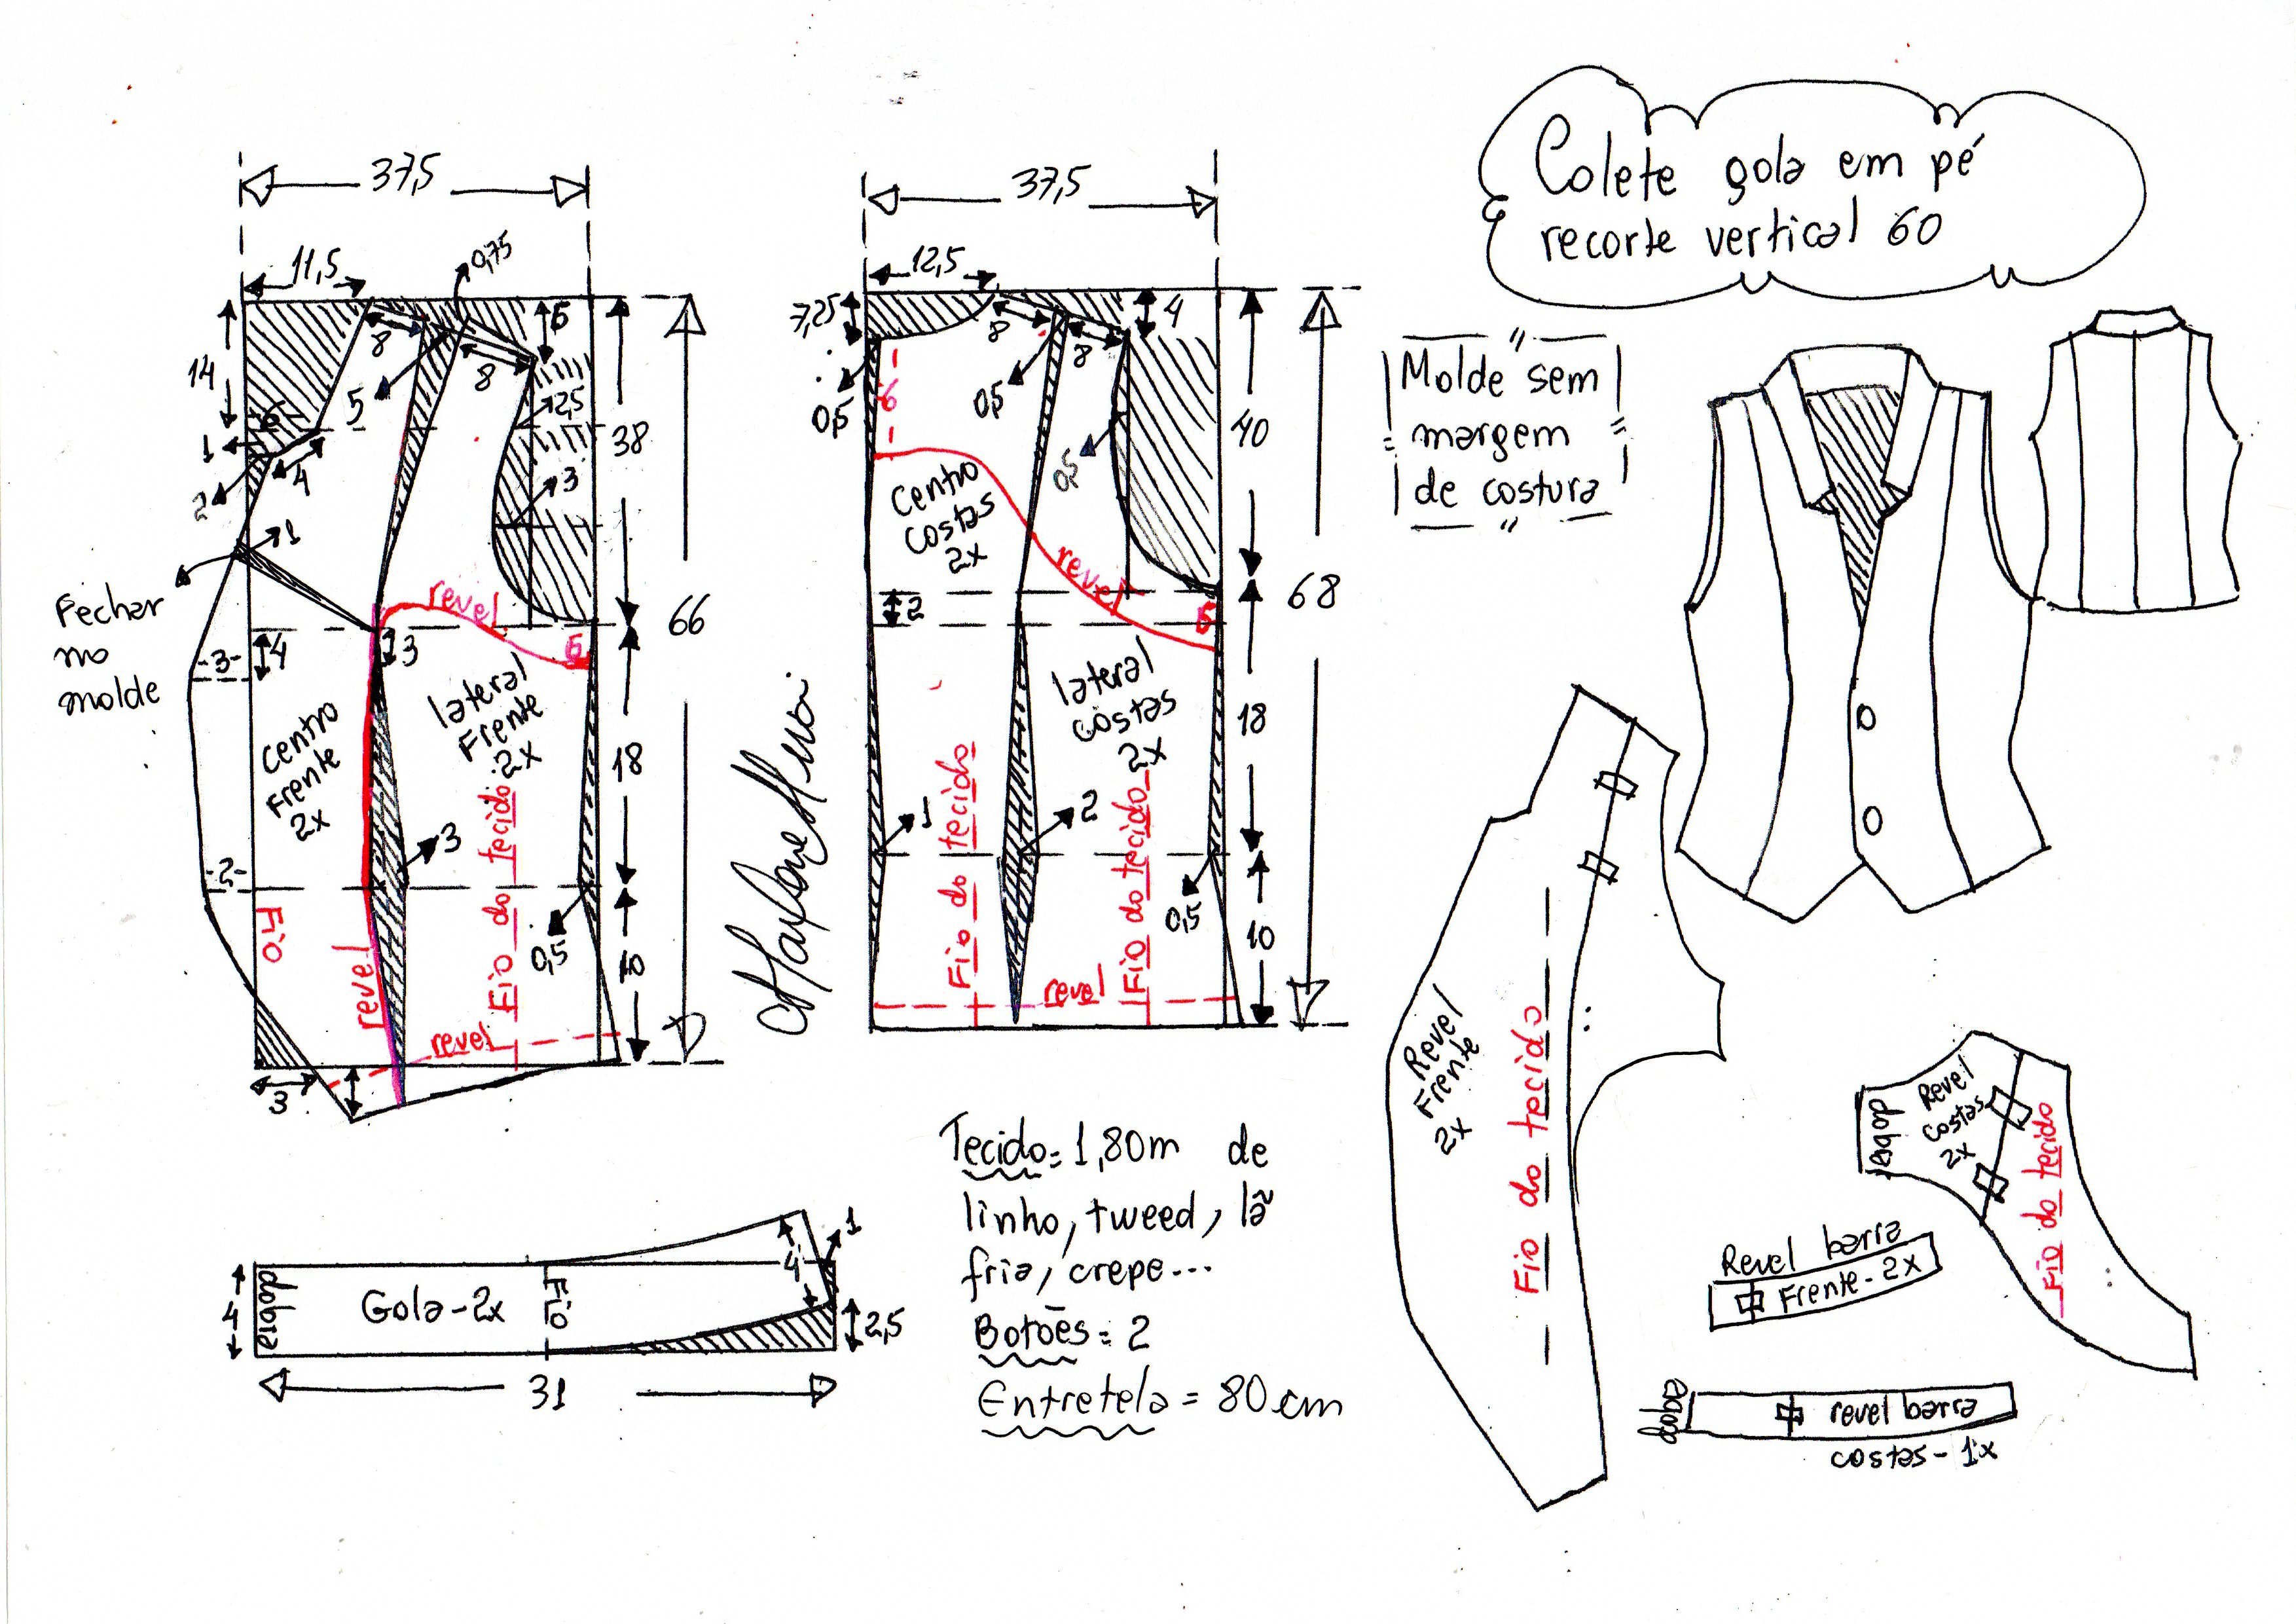 Colete gola em pé
recorte vertical 60
Molde sem
margem
de costura
37,5
11,5
0,75
14
8
5
8
6
2,5
38
6
1
4
2
3
1
Fechar
no
molde
4
3
-3-
revel
6
66
Centro
Frente
2x
lateral
Frente
2x
18
3
-2-
Fio
revel
Fio do tecido
0,5
10
revel
3
37,5
12,5
7,25
8
8
4
0,5
6
0,5
0,5
40
Centro
Costas
2x
revel
2
6
68
lateral
costas
2x
18
1
2
Fio do tecido
Fio do tecido
0,5
10
revel
4
dobra
Gola-2x
Fio
4
1
2,5
31
Tecido= 1,80m de
linho, tweed, lã
fria, crepe...
Botões= 2
Entretela = 80 cm
Revel
Frente
2x
Fio do tecido
dobra
Revel
costas
2x
Fio do tecido
Revel barra
Frente-2x
dobra
revel barra
costas-1x